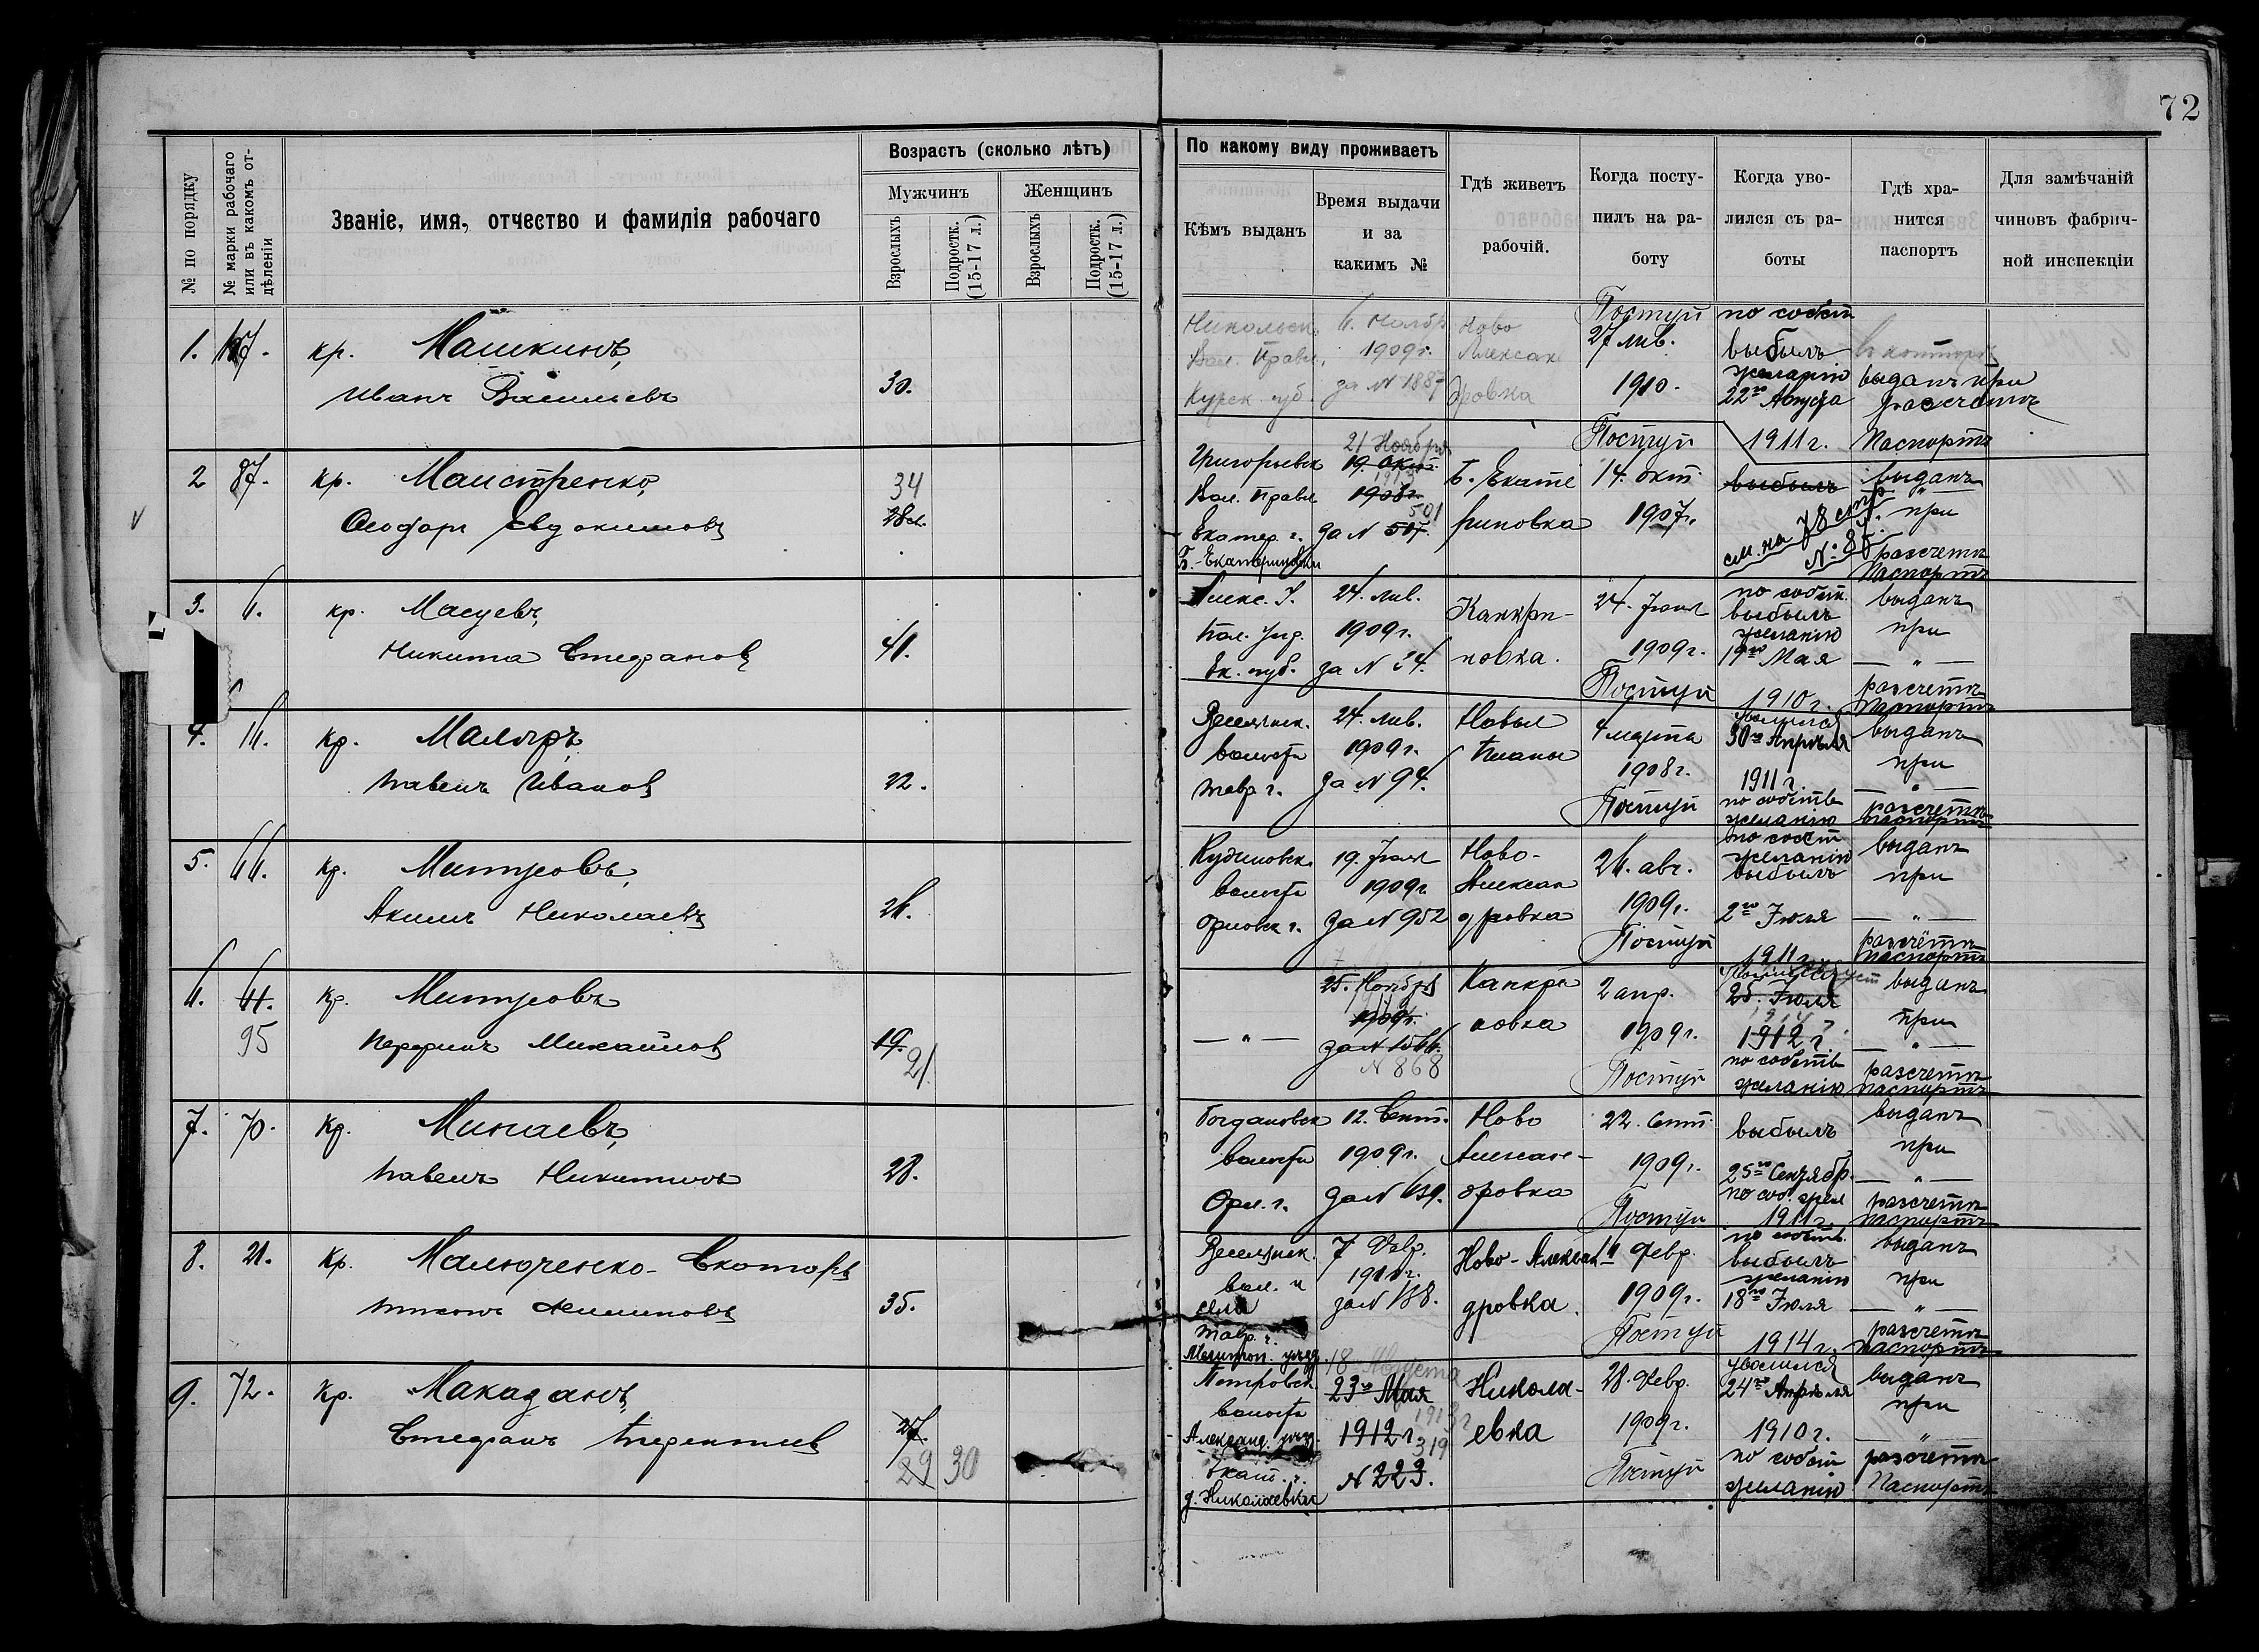 72
№ по порядку
№ марки рабочаго или въ какомъ отдѣленіи
Званіе, имя, отчество и фамилія рабочаго
Возрастъ (сколько лѣтъ)
Мужчинъ
Женщинъ
Взрослыхъ
Подростк. (15-17 л.)
Взрослыхъ
Подростк. (15-17 л.)
По какому виду проживаетъ
Кѣмъ выданъ
Время выдачи и за какимъ №
Гдѣ живетъ рабочій.
Когда поступилъ на работу
Когда уволился съ работы
Гдѣ хранится паспортъ
Для замѣчаній чиновъ фабричной инспекціи
1.
кр. Машкинъ,
Иванъ Васильевъ
30.
Никольск.
Вол. Правл.
Курск. губ.
1909г.
за N 1887
Ново
Алексан
дровка
Поступ
27 Янв.
1910.
по собст
выбылъ
желанію
22го Августа
1911г.
въ конторѣ
выданъ при
разсчетѣ
2 87. кр. Маистренко,
Ѳеодоръ Евдокимовъ
34
28
Григорьевск
Вол. Правл
Екатер. г.
Б.-Екатериновки
21 Ноября
19. Окт.
1913
1908г.
501
за N 507.
Б. Екате
риновка
Поступ
14. окт.
1907г.
выбылъ
см. на 78 стр
№ 85.
Паспортъ
выданъ
— " —
при
разсчетѣ
3. 6. кр.
Никита Стефановъ
41.
Алекс. У.
Пол. Упр.
Ек. губ.
24. Янв.
1909г.
Канкри-
новка.
24. Іюня
1909г.
по собств.
выбылъ
желанію
19го Мая
1910г.
Паспортъ
выданъ
при
— " —
разсчетѣ
4. кр. Маляръ,
Павелъ Ивановъ
22.
Веселянск.
волости
Тавр г.
24. Янв.
1909г.
за N 94.
Новые
Планы
Поступ
4 марта
1908г.
уволился
30го Апрѣля
1911г.
по собств
желанію
Паспортъ
выданъ
при
— " —
разсчетѣ
5. 66. кр. Митровъ,
Акимъ Николаевъ
26.
волости
Орловск г.
19. Іюля
1909г
за N 952
Ново-
Алексан
дровка
Поступ
26. авг.
1909г.
по собст
желанію
выбылъ
2го Іюля
1911г.
Паспортъ
выданъ
при
— " —
разсчетѣ
6.
95
кр. Митровъ
Михайловъ
19.
21
— " —
25. Ноября
1909г.
N 868
Канкри
новка
Поступ
2 апр.
1909г.
уволился
25. Іюля
1912г.
по собств
желанію
Паспортъ
выданъ
при
— " —
разсчетѣ
7. 70. кр. Минаевъ,
Павелъ Никитинъ
28.
Богдановск
волости
Орл. г.
12. Сент.
1909г.
за N 639.
Ново
Алексан-
дровка
Поступ
22. Сент.
1909г.
выбылъ
25го Сентябр.
по соб. жел
1911г.
Паспортъ
выданъ
при
— " —
разсчетѣ
8. 21. кр. Малюченко-
35.
Веселянск.
вол. и
села
Тавр. г.
Мелитоп. уѣзд.
7 Февр.
1910г.
за N 138.
Ново-Алексан-
дровка.
Поступ
11 Февр.
1909г.
по собств.
выбылъ
желанію
18го Іюля
1914г.
Паспортъ
выданъ
при
— " —
разсчетѣ
9. 72. кр. Макаданъ,
Стефанъ Терентьев
27.
29 30
Петровск.
волости
Александ. уѣзд.
Екат. г.
д. Николаевка
18 Августа
23го Мая
1913г
1912г.
319
N 223.
Никола-
евка
Поступ
28. Февр.
1909г.
уволился
24го Апрѣля
1910г.
по собст
желанію
Паспортъ
выданъ
при
— " —
разсчетѣ
Паспортъ